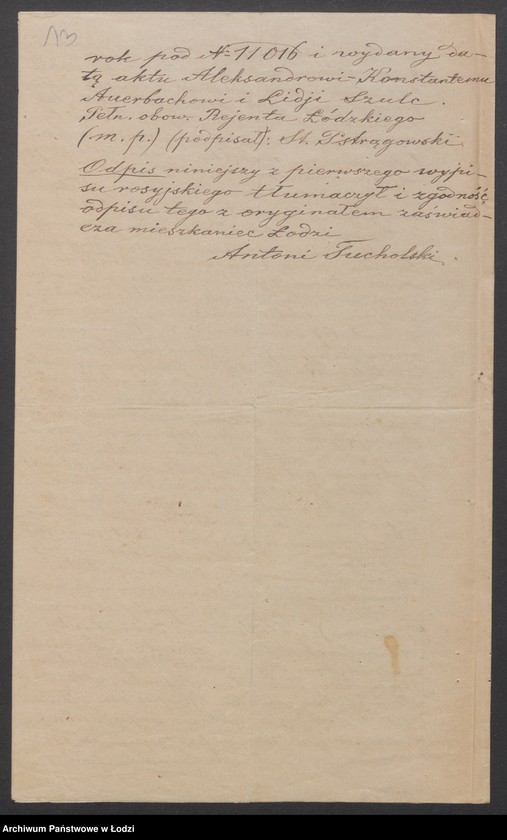 13
rok pod № 11016 i wydany da-
tą aktu Aleksandrowi-Konstantemu
Auerbachowi i Lidji Szulc.
Pełn. obow. Rejenta Łódzkiego
(m. p.) (podpisał): St. Pstrągowski.
Odpis niniejszy z pierwszego wypi-
su rosyjskiego tłumaczył i zgodność
odpisu tego z oryginałem zaświad-
cza mieszkaniec Łodzi
Antoni Tucholski.
Archiwum Państwowe w Łodzi